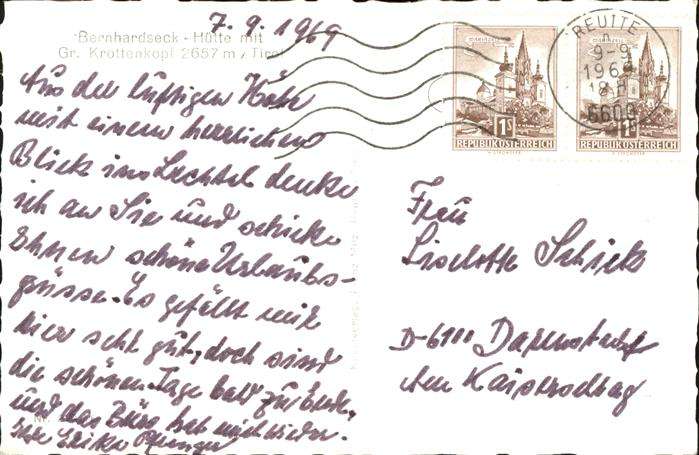 7. 9. 1969
Bernhardseck - Hütte mit
Gr. Krottenkopf 2657 m, Tirol
Aus der luftigen Höhe
mit einem herrlichen
Blick ins Lechtal denke
ich an Sie und schicke
Ihnen schöne Urlaubs-
grüsse. Es gefällt mir
hier sehr gut, doch sind
die schönen Tage bald zu Ende,
und das Büro hat mich wieder.
Ihre Erika
REUTTE
9-9
196
6600
1S
REPUBLIK ÖSTERREICH
1S
REPUBLIK ÖSTERREICH
Frau
Liselotte Schick
D-6100 Darmstadt
Am Kaiserschlag